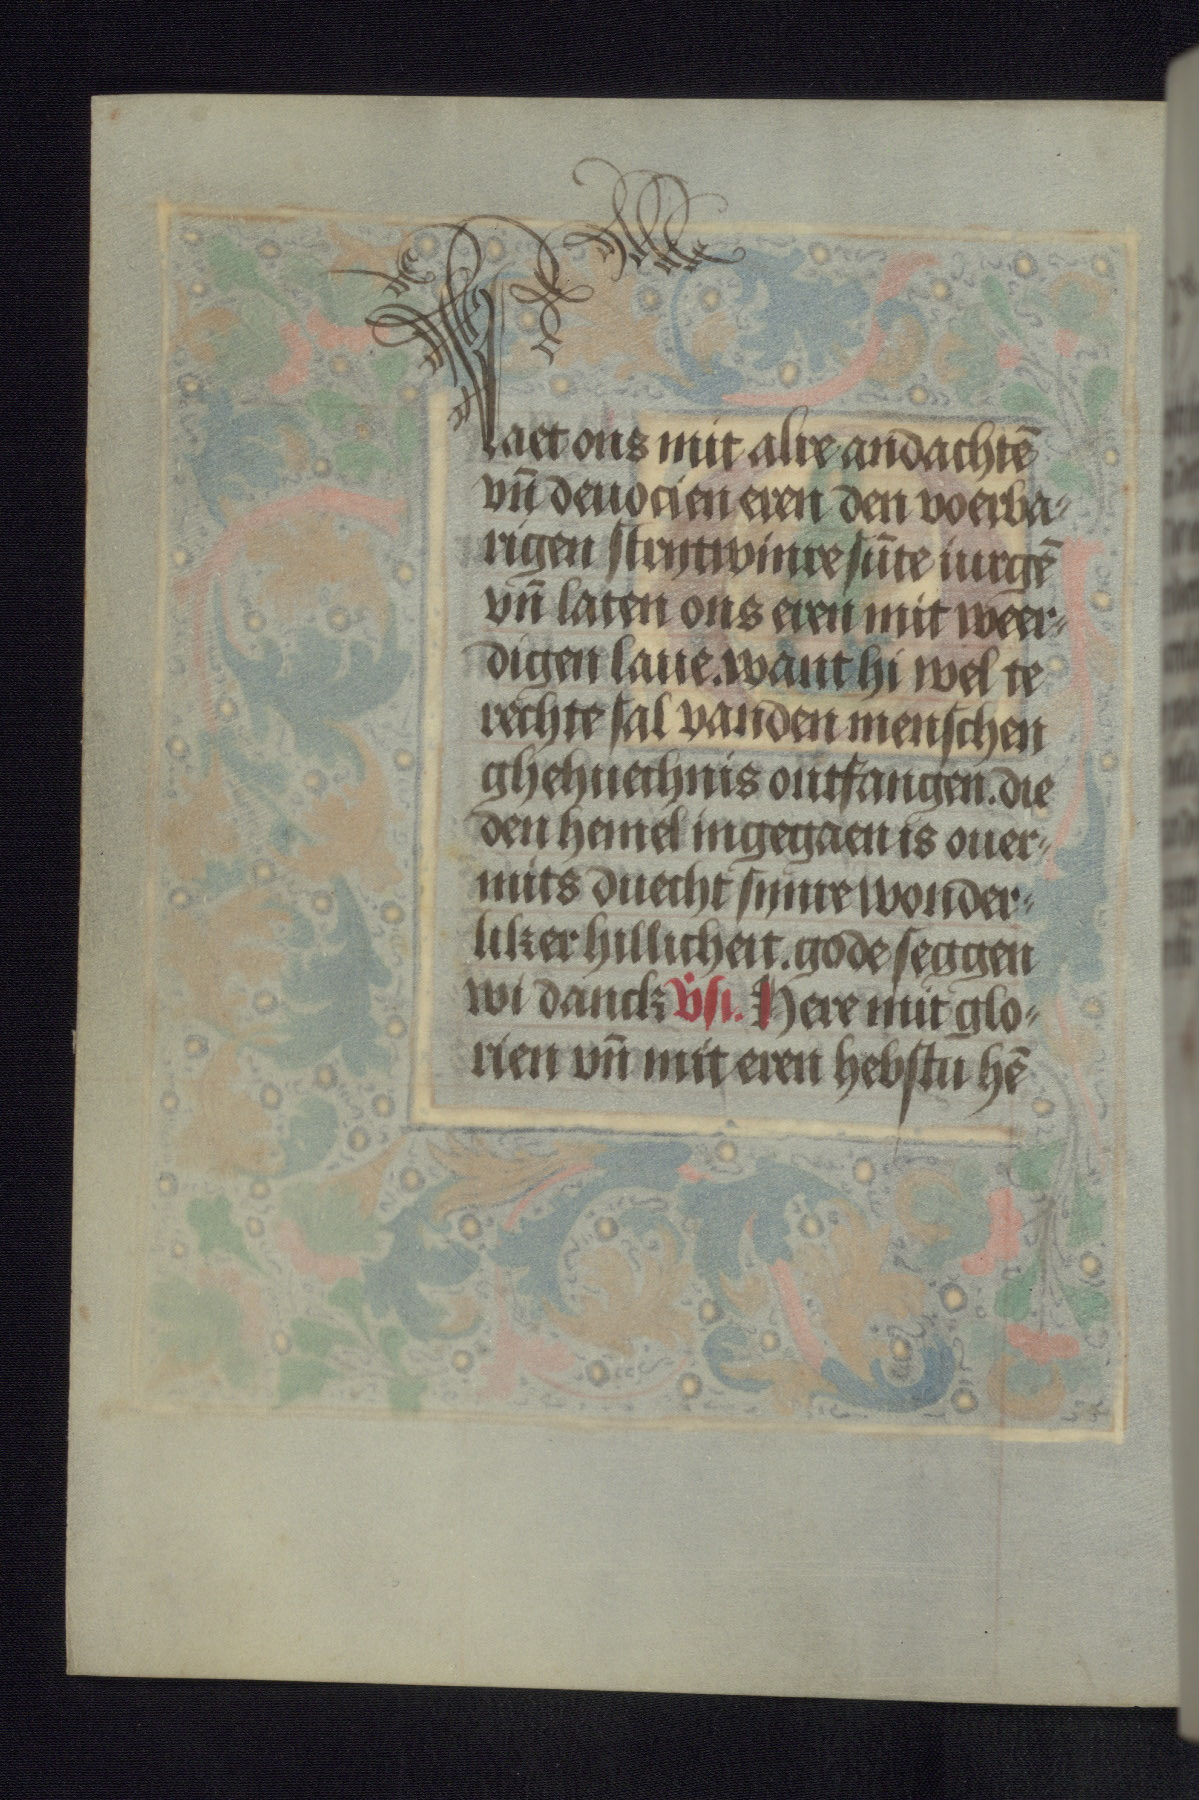 Laet ons mit alre andachtē
vn̄ deuocien eren den voerba-
rigen strytwinre sūte iurgē
vn̄ laten ons eren mit weer-
digen laue. want hi wel te
rechte sal vanden menschen
ghehuechnis ontfangen. die
den hemel ingegaen is ouer-
mits duecht synre wonder-
liker hillicheit. gode seggen
wi danck v̄si. Here mit glo-
rien vn̄ mit eren hebstu hē